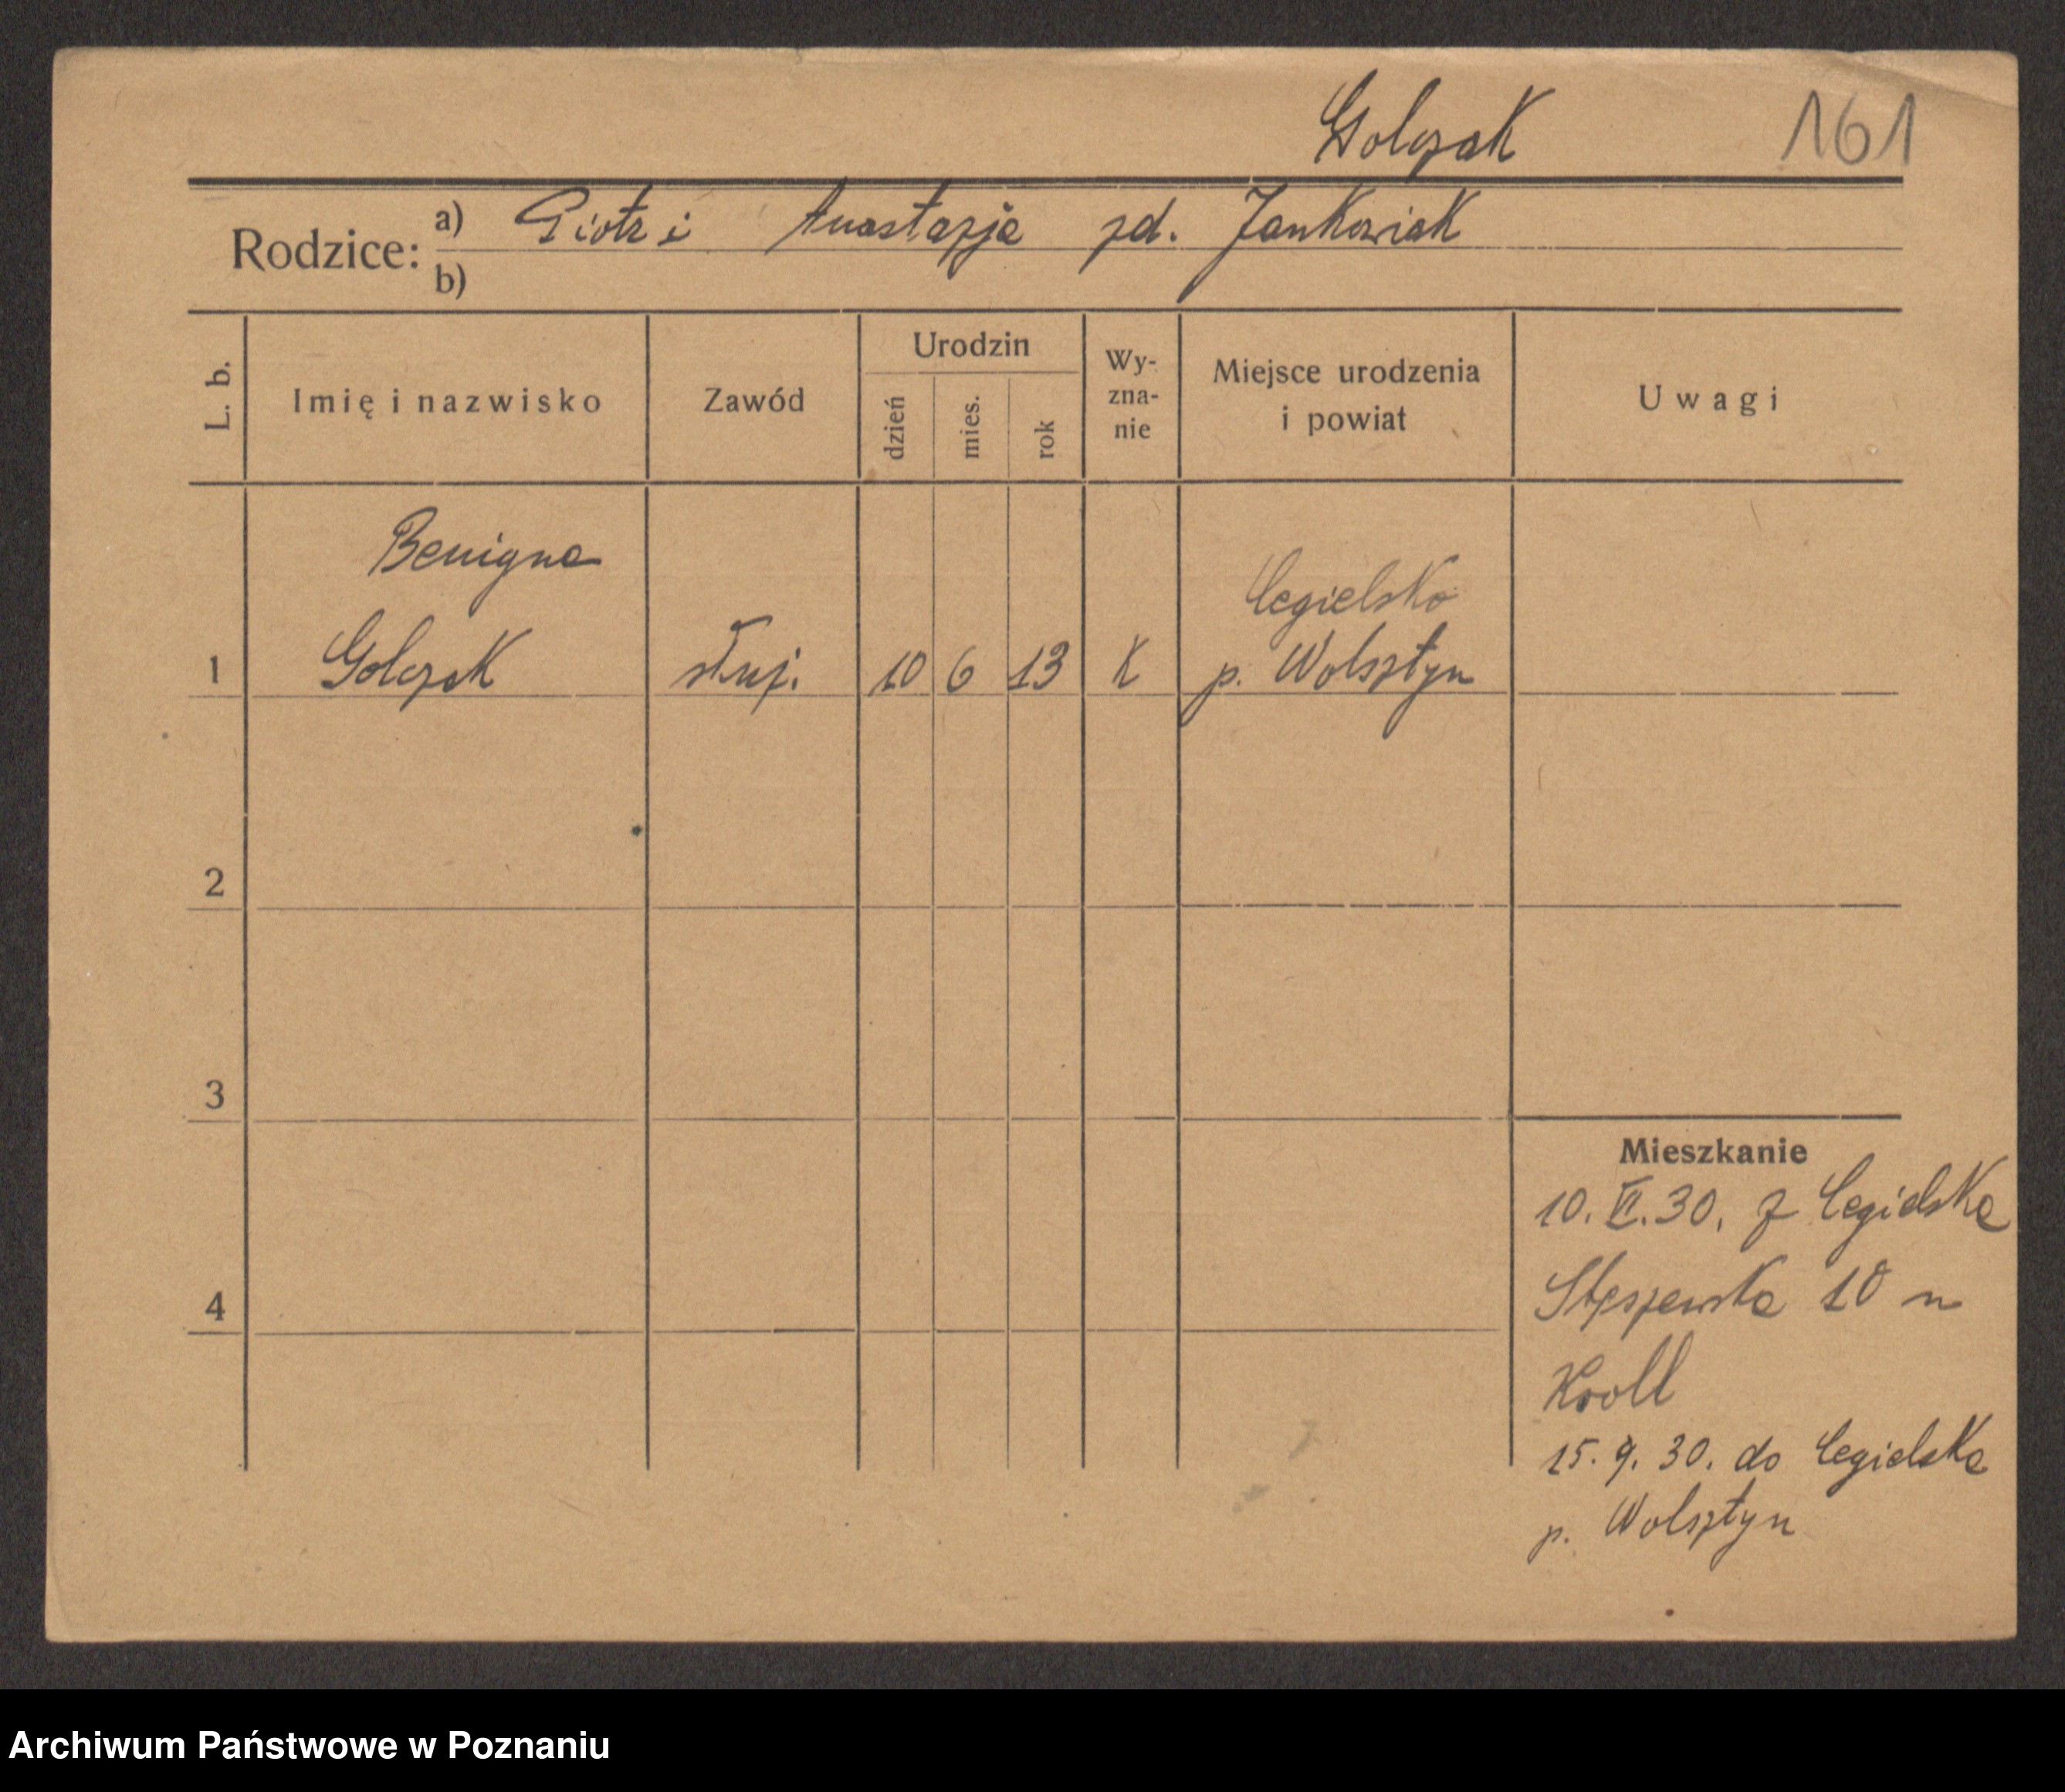 Golczak 161
Rodzice: a) Piotr i Anastazja zd. Jankowiak
b)
L. b. Imię i nazwisko Zawód Urodzin dzień mies. rok Wy-zna-nie Miejsce urodzenia i powiat Uwagi
Benigna Cegielsko
1 Golczak służ. 10 6 13 K p. Wolsztyn
2
3
Mieszkanie
10. VI. 30. z Cegielska
4 Stęszewska 10 u
Kroll
15. 9. 30. do Cegielska
p. Wolsztyn
Archiwum Państwowe w Poznaniu